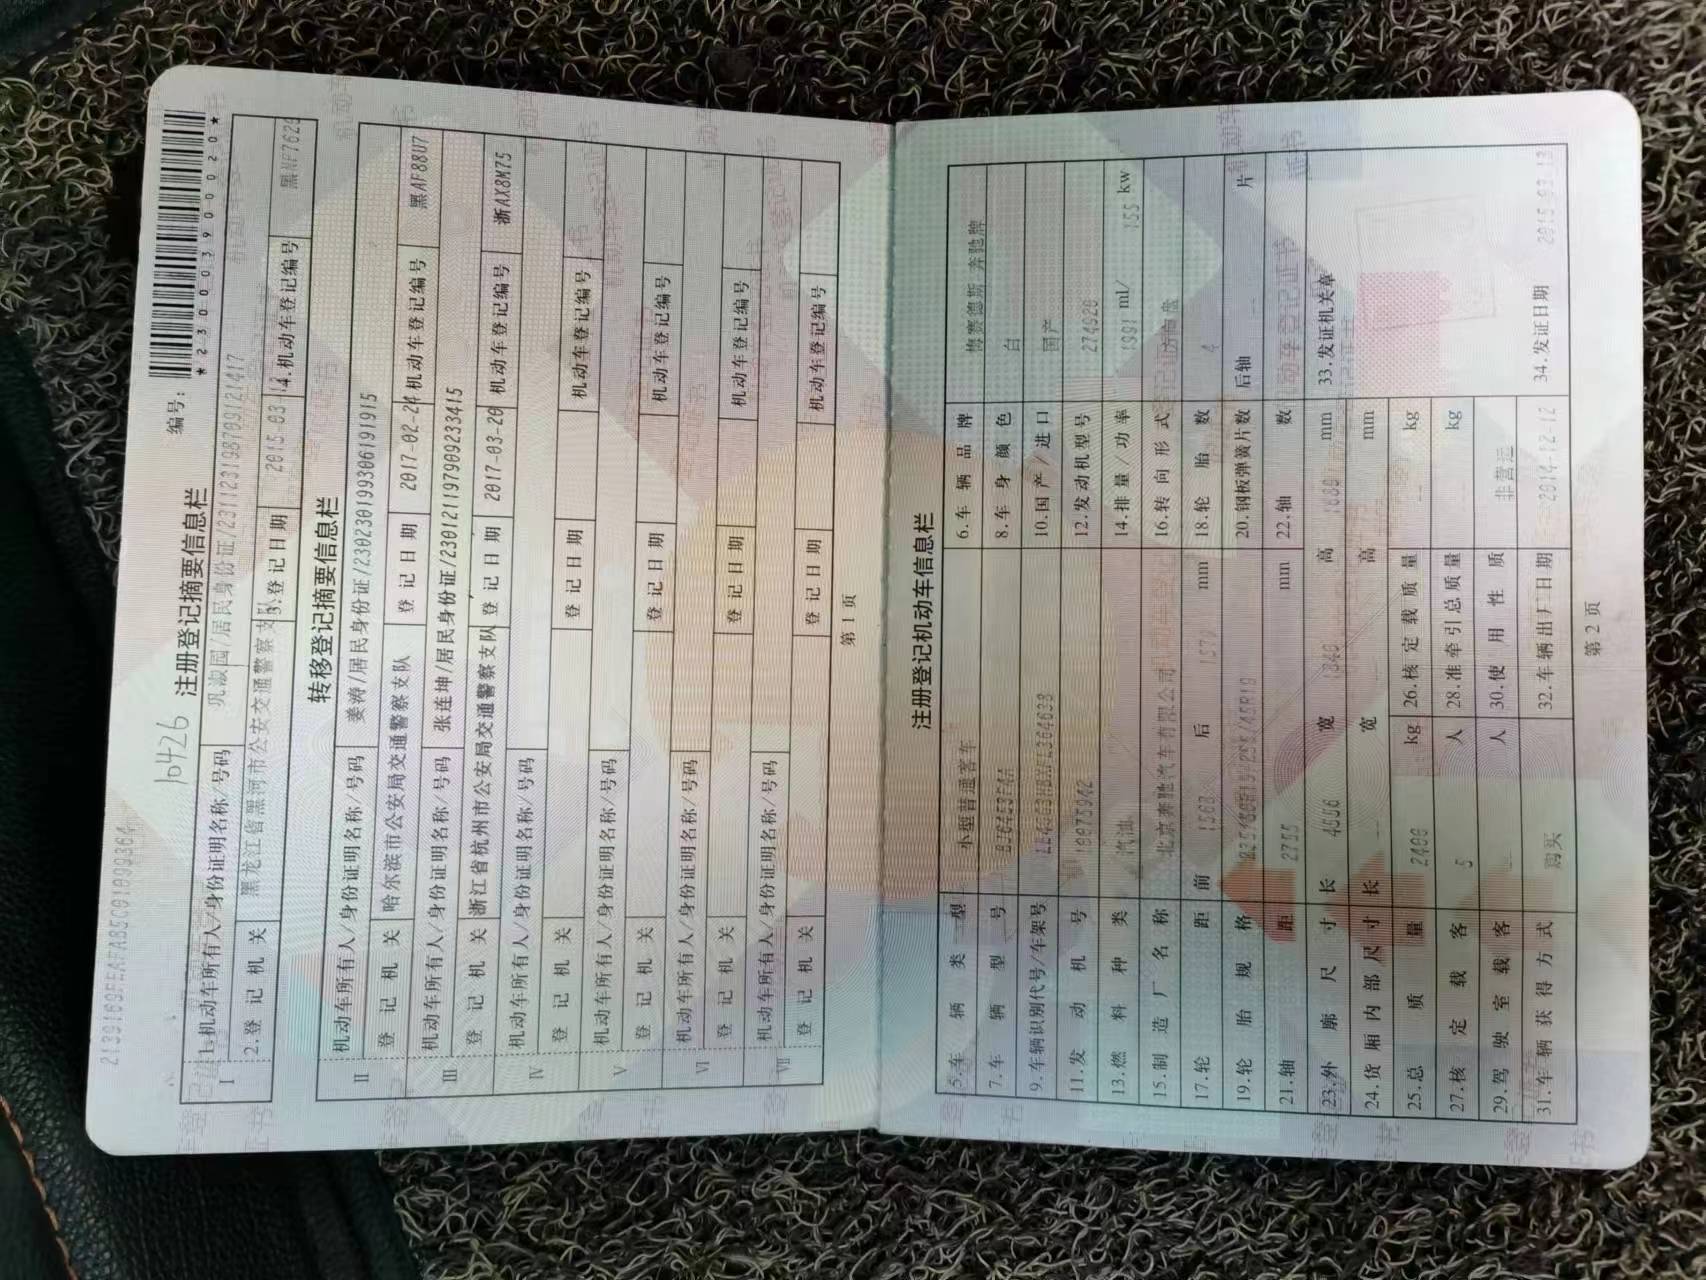 2139169FEAFA85C01999364
10426
注册登记摘要信息栏 编号：
*230003900020*
Ⅰ 1.机动车所有人/身份证明名称/号码 巩淑园/居民身份证/231123198709121417
2.登记机关 黑龙江省黑河市公安交通警察支队 3.登记日期 2015-03 4.机动车登记编号 黑NP762
转移登记摘要信息栏
Ⅱ 机动车所有人/身份证明名称/号码 姜涛/居民身份证/230230199306191915
登记机关 哈尔滨市公安局交通警察支队 登记日期 2017-02-24 机动车登记编号 黑AF88U7
Ⅲ 机动车所有人/身份证明名称/号码 张连坤/居民身份证/230121197909233415
登记机关 浙江省杭州市公安局交通警察支队 登记日期 2017-03-20 机动车登记编号 浙AX8M75
Ⅳ 机动车所有人/身份证明名称/号码
登记机关 登记日期 机动车登记编号
Ⅴ 机动车所有人/身份证明名称/号码
登记机关 登记日期 机动车登记编号
Ⅵ 机动车所有人/身份证明名称/号码
登记机关 登记日期 机动车登记编号
Ⅶ 机动车所有人/身份证明名称/号码
登记机关 登记日期 机动车登记编号
第1页
注册登记机动车信息栏
5.车辆类型 小型普通客车 6.车辆品牌 梅赛德斯-奔驰牌
7.车辆型号 8.车身颜色 白
9.车辆识别代号/车架号 10.国产/进口 国产
11.发动机号 12.发动机型号 274920
13.燃料种类 汽油 14.排量/功率 1991 ml/ 155 kw
15.制造厂名称 北京奔驰汽车有限公司 16.转向形式 方向盘
17.轮距 前 1568 后 157 mm 18.轮胎数 4
19.轮胎规格 235/45R19 20.钢板弹簧片数 后轴 片
21.轴距 2755 mm 22.轴数
23.外廓尺寸 长 4656 宽 1840 高 mm 33.发证机关章
24.货厢内部尺寸 长 宽 高 mm
25.总质量 2400 kg 26.核定载质量 -- kg
27.核定载客 5 人 28.准牵引总质量 -- kg
29.驾驶室载客 -- 人 30.使用性质 非营运
31.车辆获得方式 购买 32.车辆出厂日期 2014-12-12 34.发证日期 2015-03-13
第2页